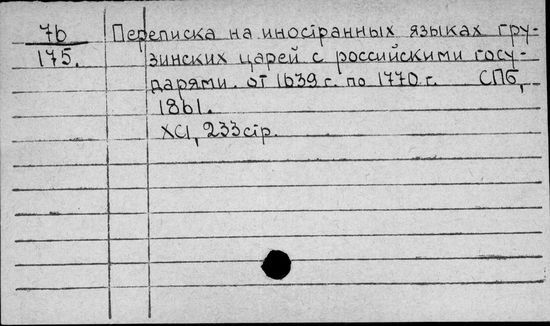 7б Переписка на иностранных языках гру-
175. зинских царей с российскими госу-
дарями. от 1639 г. по 1770 г. СПб,
1861.
XCI, 233 стр.